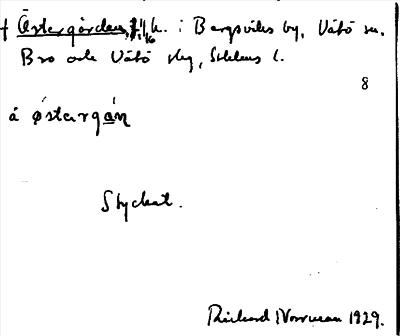 † Östergården, h. i Bergsviks by, Vätö sn.
Bro och Vätö slg, Sthlms l.
8
á østergån
Styckat.
Rickard Norrman 1929.